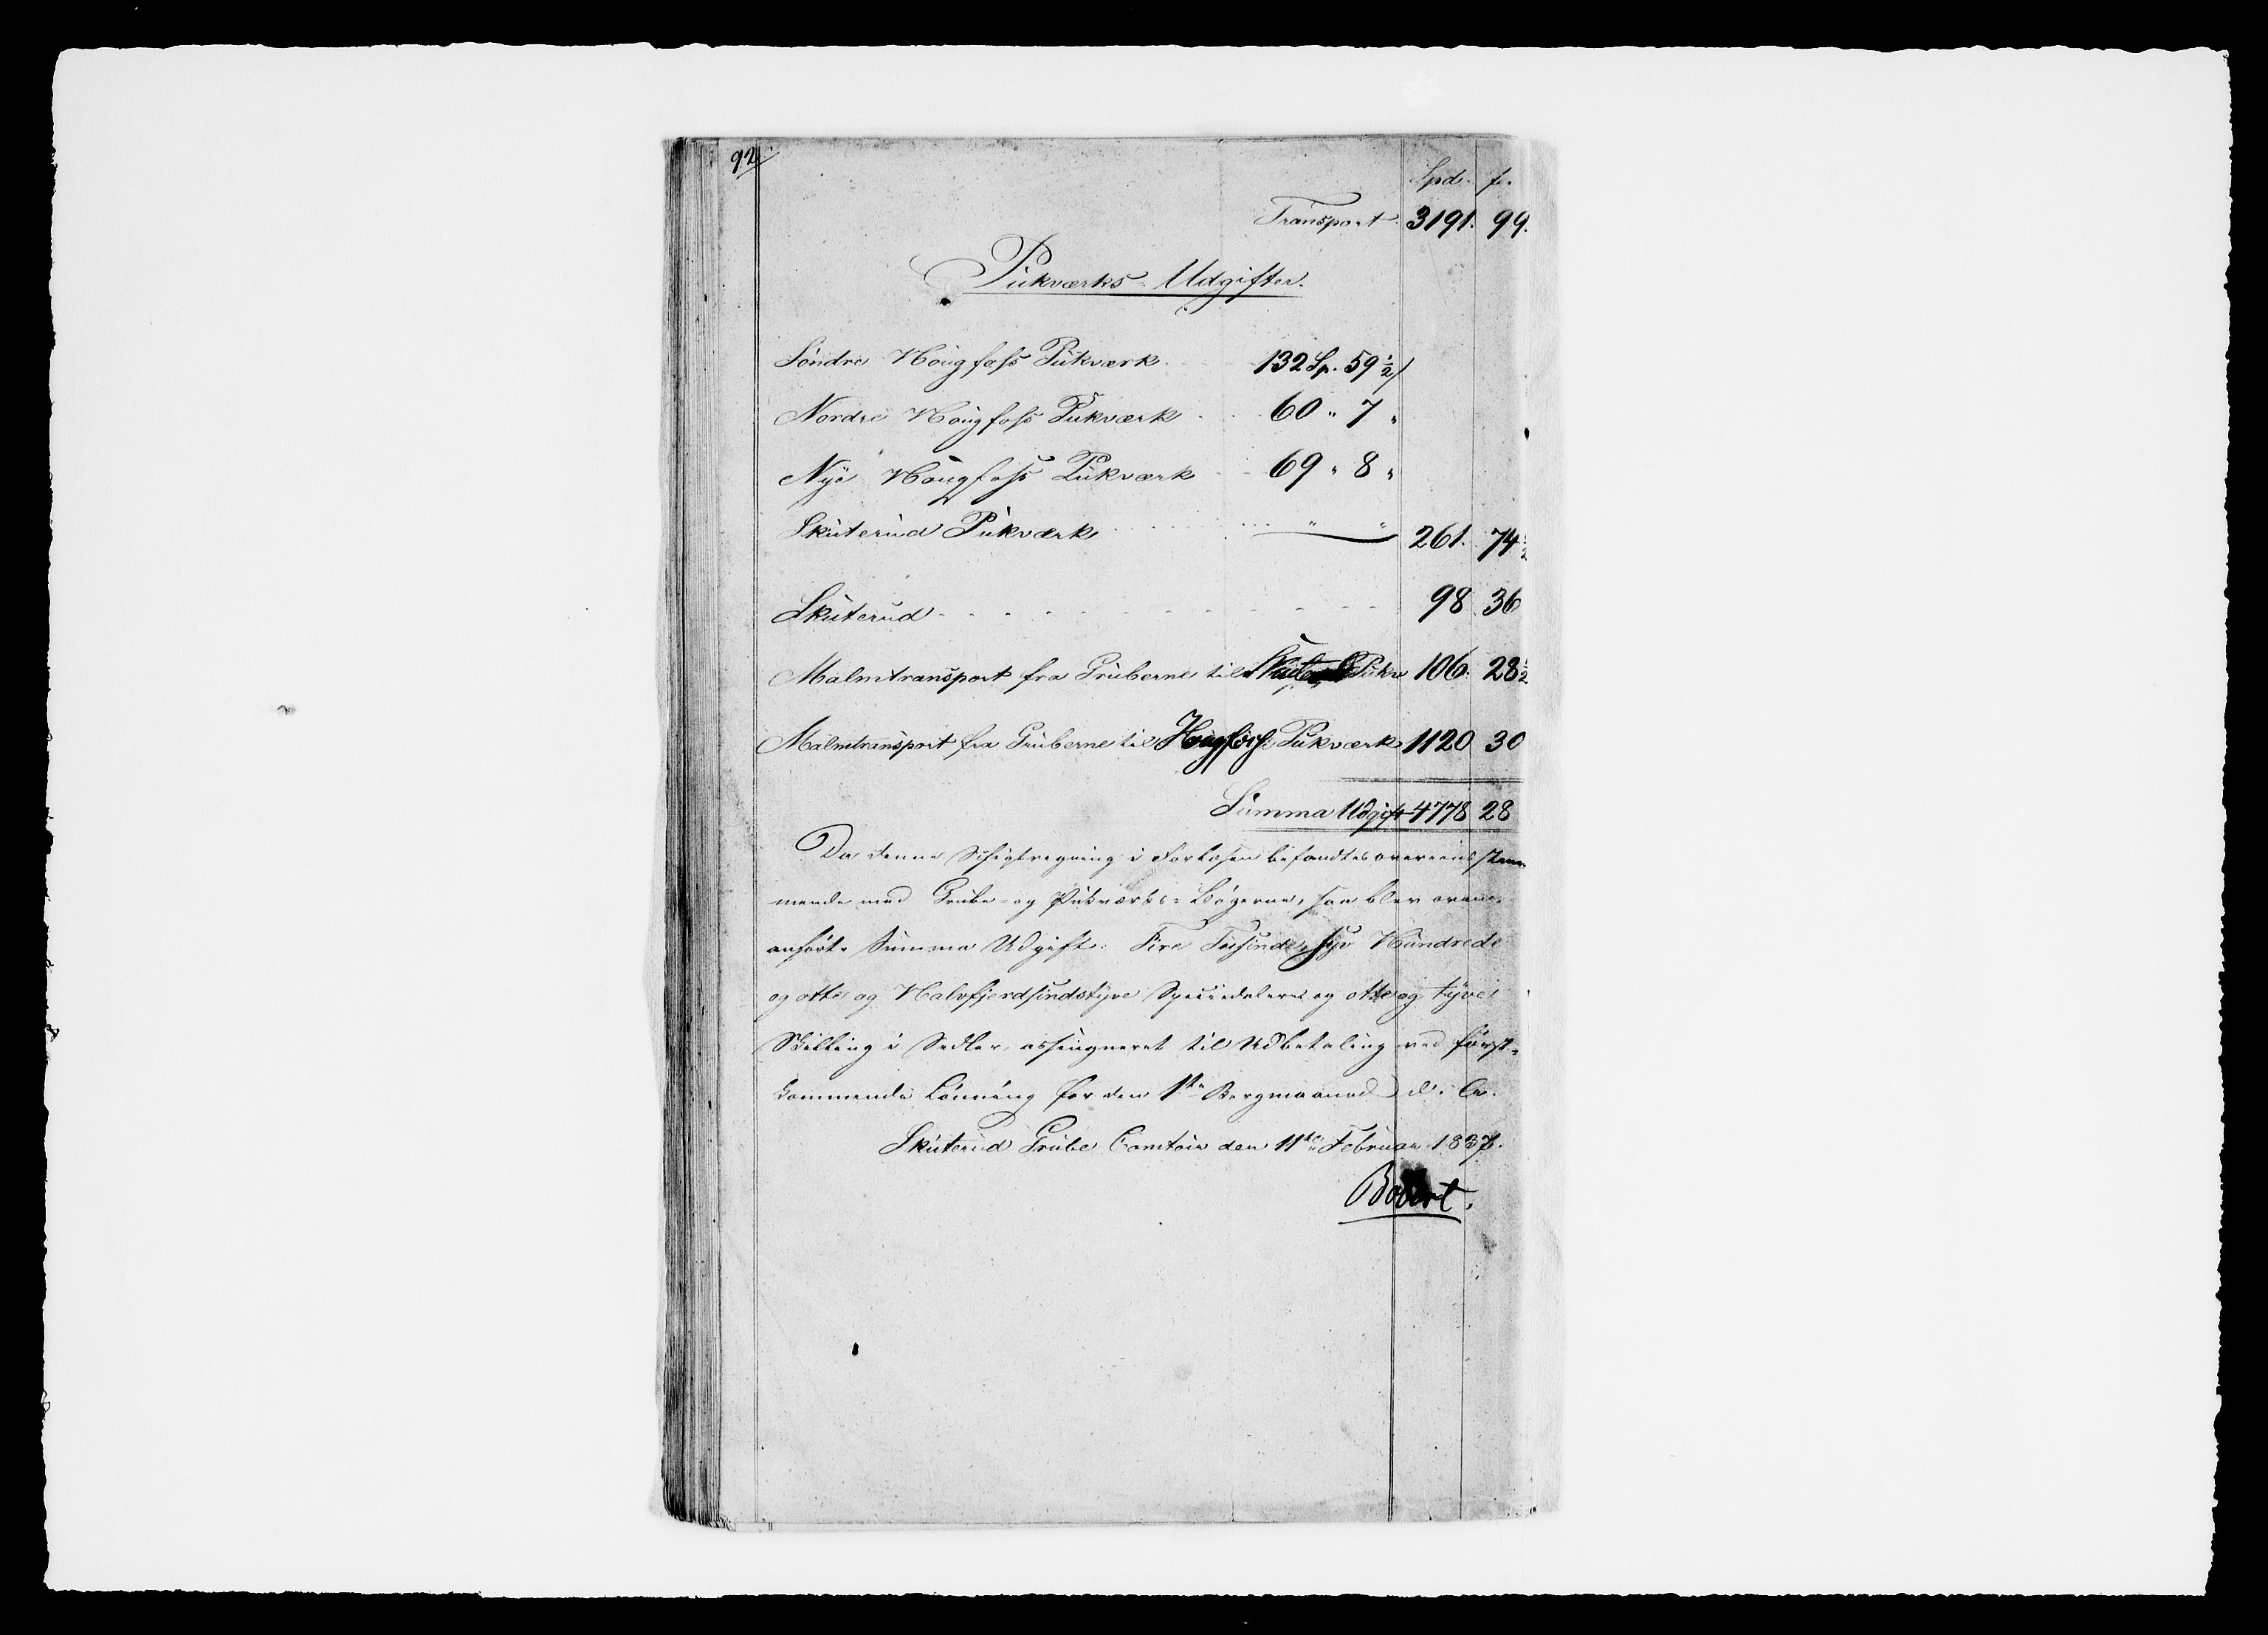 92/
Spd. ß.
Transport 3191. 99.
Pukværks-Udgifter.
Söndre Hougfoss Pukværk 132 Sp. 59 1/2 ß
Nordre Hougfoss Pukværk 60 " 7 "
Nye Hougfoss Pukværk 69 " 8 "
Skuterud Pukværk " " 261. 74 1/2
Skuterud 98. 36
Malmtransport fra Gruberne til Pukv 106. 28 1/2
Malmtransport fra Gruberne til Hougfoss Pukværk 1120 30
Summa Udgift 4778 28
Da denne Schigtregning i Forlæsen befandtes overeensstem-
mende med Grube- og Pukværks-Bögerne, saa blev oven-
anförte Summa Udgift: Fire Tusinde, syv Hundrede
og otte og Halvfjerdsindstyve Speciedalere og otte og tyve
Skilling i Sedler, assigneret til Udbetaling ved först-
kommende Lönning for den 1ste Bergmaaned d. A.
Skuterud Grube Comtoir den 11te Februar 1837.
Böbert.